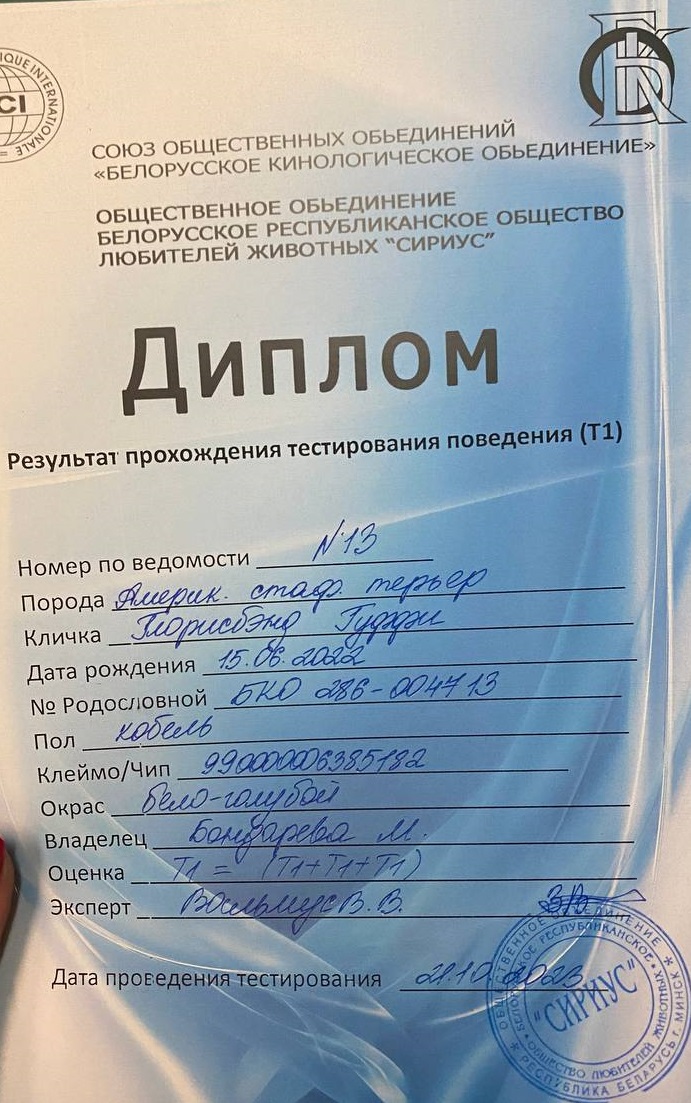 QUE INTERNATIONALE
CI
БКО
СОЮЗ ОБЩЕСТВЕННЫХ ОБЬЕДИНЕНИЙ
«БЕЛОРУССКОЕ КИНОЛОГИЧЕСКОЕ ОБЬЕДИНЕНИЕ»
ОБЩЕСТВЕННОЕ ОБЬЕДИНЕНИЕ
БЕЛОРУССКОЕ РЕСПУБЛИКАНСКОЕ ОБЩЕСТВО
ЛЮБИТЕЛЕЙ ЖИВОТНЫХ "СИРИУС"
Диплом
Результат прохождения тестирования поведения (Т1)
Номер по ведомости N13
Порода Америк. стаф. терьер
Кличка Глорисбэнд Гуджи
Дата рождения 15.06.2022
№ Родословной БКО 286-004713
Пол кобель
Клеймо/Чип 990000006385182
Окрас бело-голубой
Владелец Бондарева М.
Оценка Т1 = (Т1+Т1+Т1)
Эксперт В.В.
Дата проведения тестирования 21.10.2023
ОБЩЕСТВЕННОЕ ОБЪЕДИНЕНИЕ * РЕСПУБЛИКА БЕЛАРУСЬ г. МИНСК *
БЕЛОРУССКОЕ РЕСПУБЛИКАНСКОЕ ОБЩЕСТВО ЛЮБИТЕЛЕЙ ЖИВОТНЫХ
"СИРИУС"